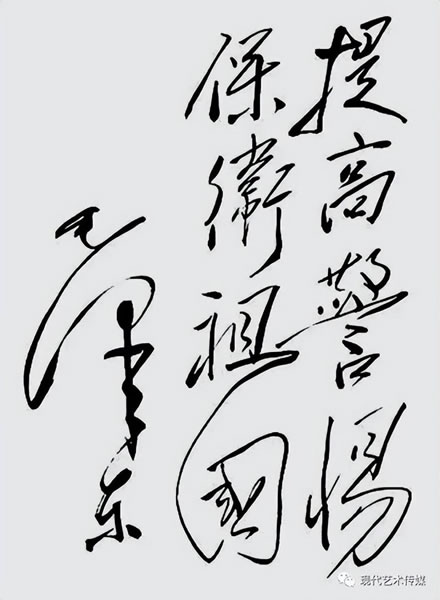 提高警惕
保衛祖國
毛泽东
现代艺术传媒